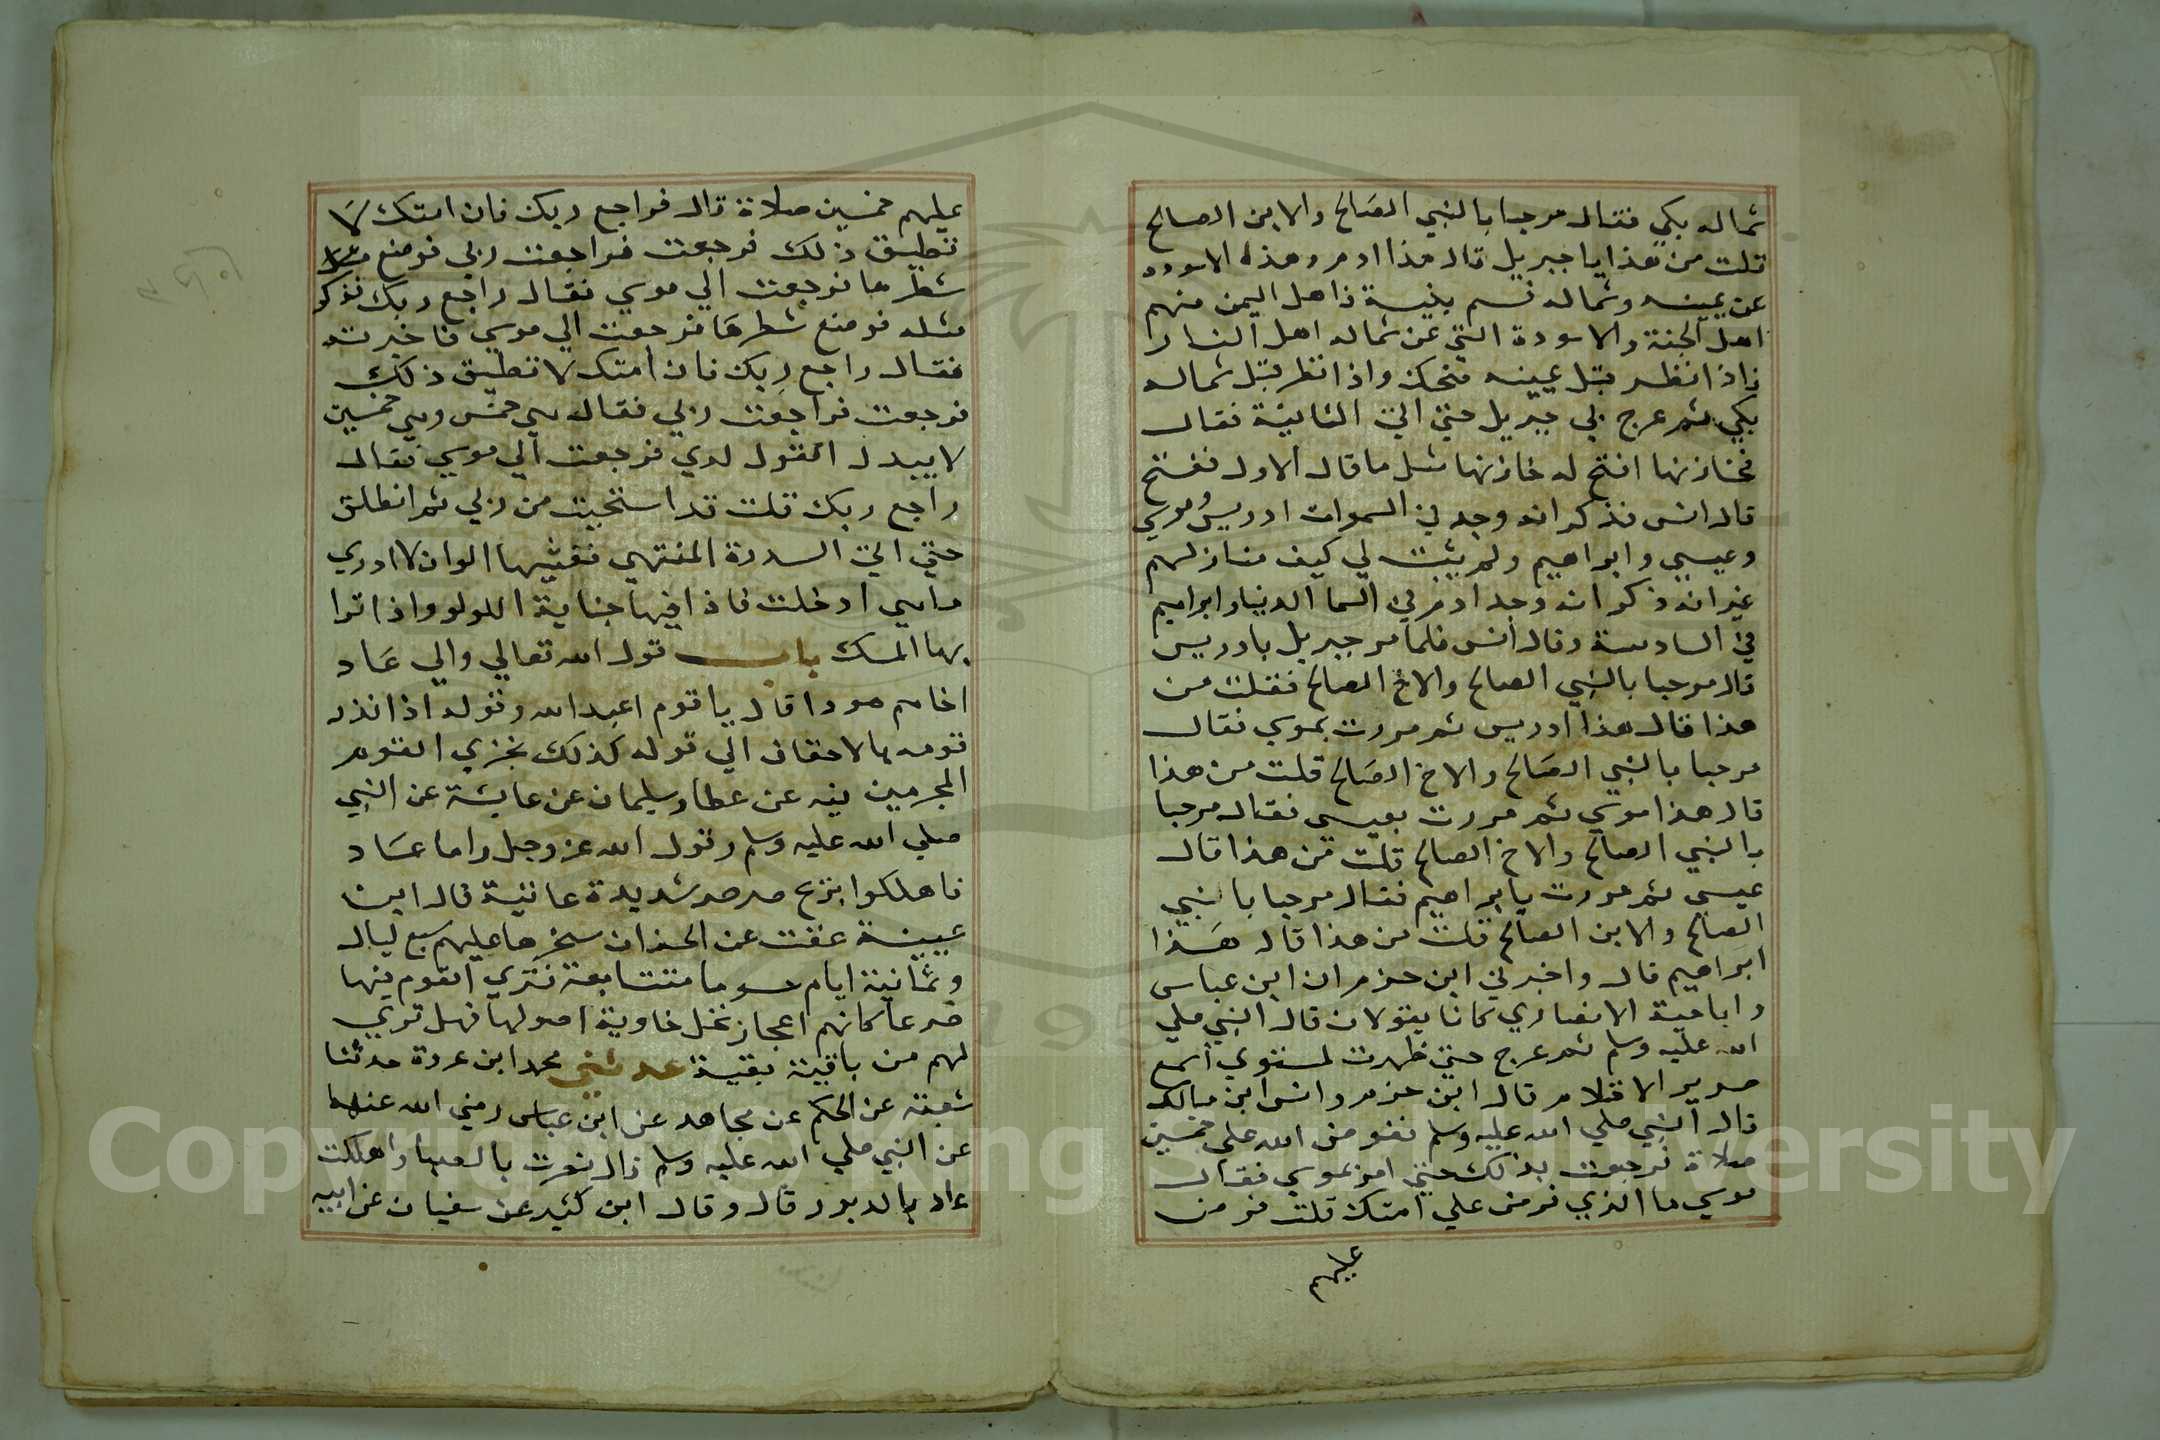 شماله بكي فقال مرحبا بالنبي الصالح والابن الصالح
قلت من هذا يا جبريل قال هذا ادم وهذه الاسودة
عن يمينه وشماله نسم بنيه فاهل اليمن منهم
اهل الجنة والاسودة التي عن شماله اهل النار
فاذا نظر قبل يمينه ضحك واذا نظر قبل شماله
بكي ثم عرج بي جبريل حتي اتي الثانية فقال
لخازنها افتح له خازنها مثل ما قال الاول ففتح
قال انس فذكر انه وجد في السموات ادريس وموسي
وعيسي وابراهيم ولم يثبت لي كيف منازلهم
غير انه ذكر انه وجد ادم في السما الدنيا وابراهيم
في السادسة وقال انس فلما مر جبريل بادريس
قال مرحبا بالنبي الصالح والاخ الصالح فقلت من
هذا قال هذا ادريس ثم مررت بموسي فقال
مرحبا بالنبي الصالح والاخ الصالح قلت من هذا
قال هذا موسي ثم مررت بعيسي فقال مرحبا
بالنبي الصالح والاخ الصالح قلت من هذا قال
عيسي ثم مررت بابراهيم فقال مرحبا بالنبي
الصالح والابن الصالح قلت من هذا قال هذا
ابراهيم قال واخبرني ابن حزم ان ابن عباس
وابا حية الانصاري كانا يقولان قال النبي صلي
الله عليه وسلم ثم عرج حتي ظهرت لمستوي اسمع
صرير الاقلام قال ابن حزم وانس ابن مالك
قال النبي صلي الله عليه وسلم ففرض الله علي خمسين
صلاة فرجعت بذلك حتي امر بموسي فقال
موسي ما الذي فرض علي امتك قلت فرض
عليهم
عليهم خمسين صلاة قال فراجع ربك فان امتك لا
تطيق ذلك فرجعت فراجعت ربي فوضع
شطرها فرجعت الي موسي فقال راجع ربك فذكر
مثله فوضع شطرها فرجعت الي موسي فاخبرته
فقال راجع ربك فان امتك لا تطيق ذلك
فرجعت فراجعت ربي فقال هي خمس وهي خمسين
لا يبدل القول لدي فرجعت الي موسي فقال
راجع ربك قلت قد استحييت من ربي ثم انطلق
حتي اتي السدرة المنتهي فغشيها الوان لا ادري
ما هي ادخلت فاذا فيها جنابذ اللولو واذا ترا
بها المسك باب قول الله تعالي والي عاد
اخاهم هودا قال يا قوم اعبدالله وقوله اذ انذر
قومه بالاحقاف الي قوله كذلك نجزي القوم
المجرمين فيه عن عطا وسليمان عن عايشة عن النبي
صلي الله عليه وسلم وقول الله عز وجل واما عاد
فاهلكوا بريح صرصر شديدة عاتية قال ابن
عيينة عتت عن الخزان سخرها عليهم سبع ليال
وثمانية ايام حسوما متتابعة فتري القوم فيها
صرعا كانهم اعجاز نخل خاوية اصولها فهل تري
لهم من باقية بقية حدثني محمد ابن عروة حدثنا
شعبة عن الحكم عن مجاهد عن ابن عباس رضي الله عنهما
عن النبي صلي الله عليه وسلم قال نصرت بالصبا واهلكت
عاد بالدبور قال وقال ابن كثير عن سفيان عن ابيه
Copyright © King Saud University